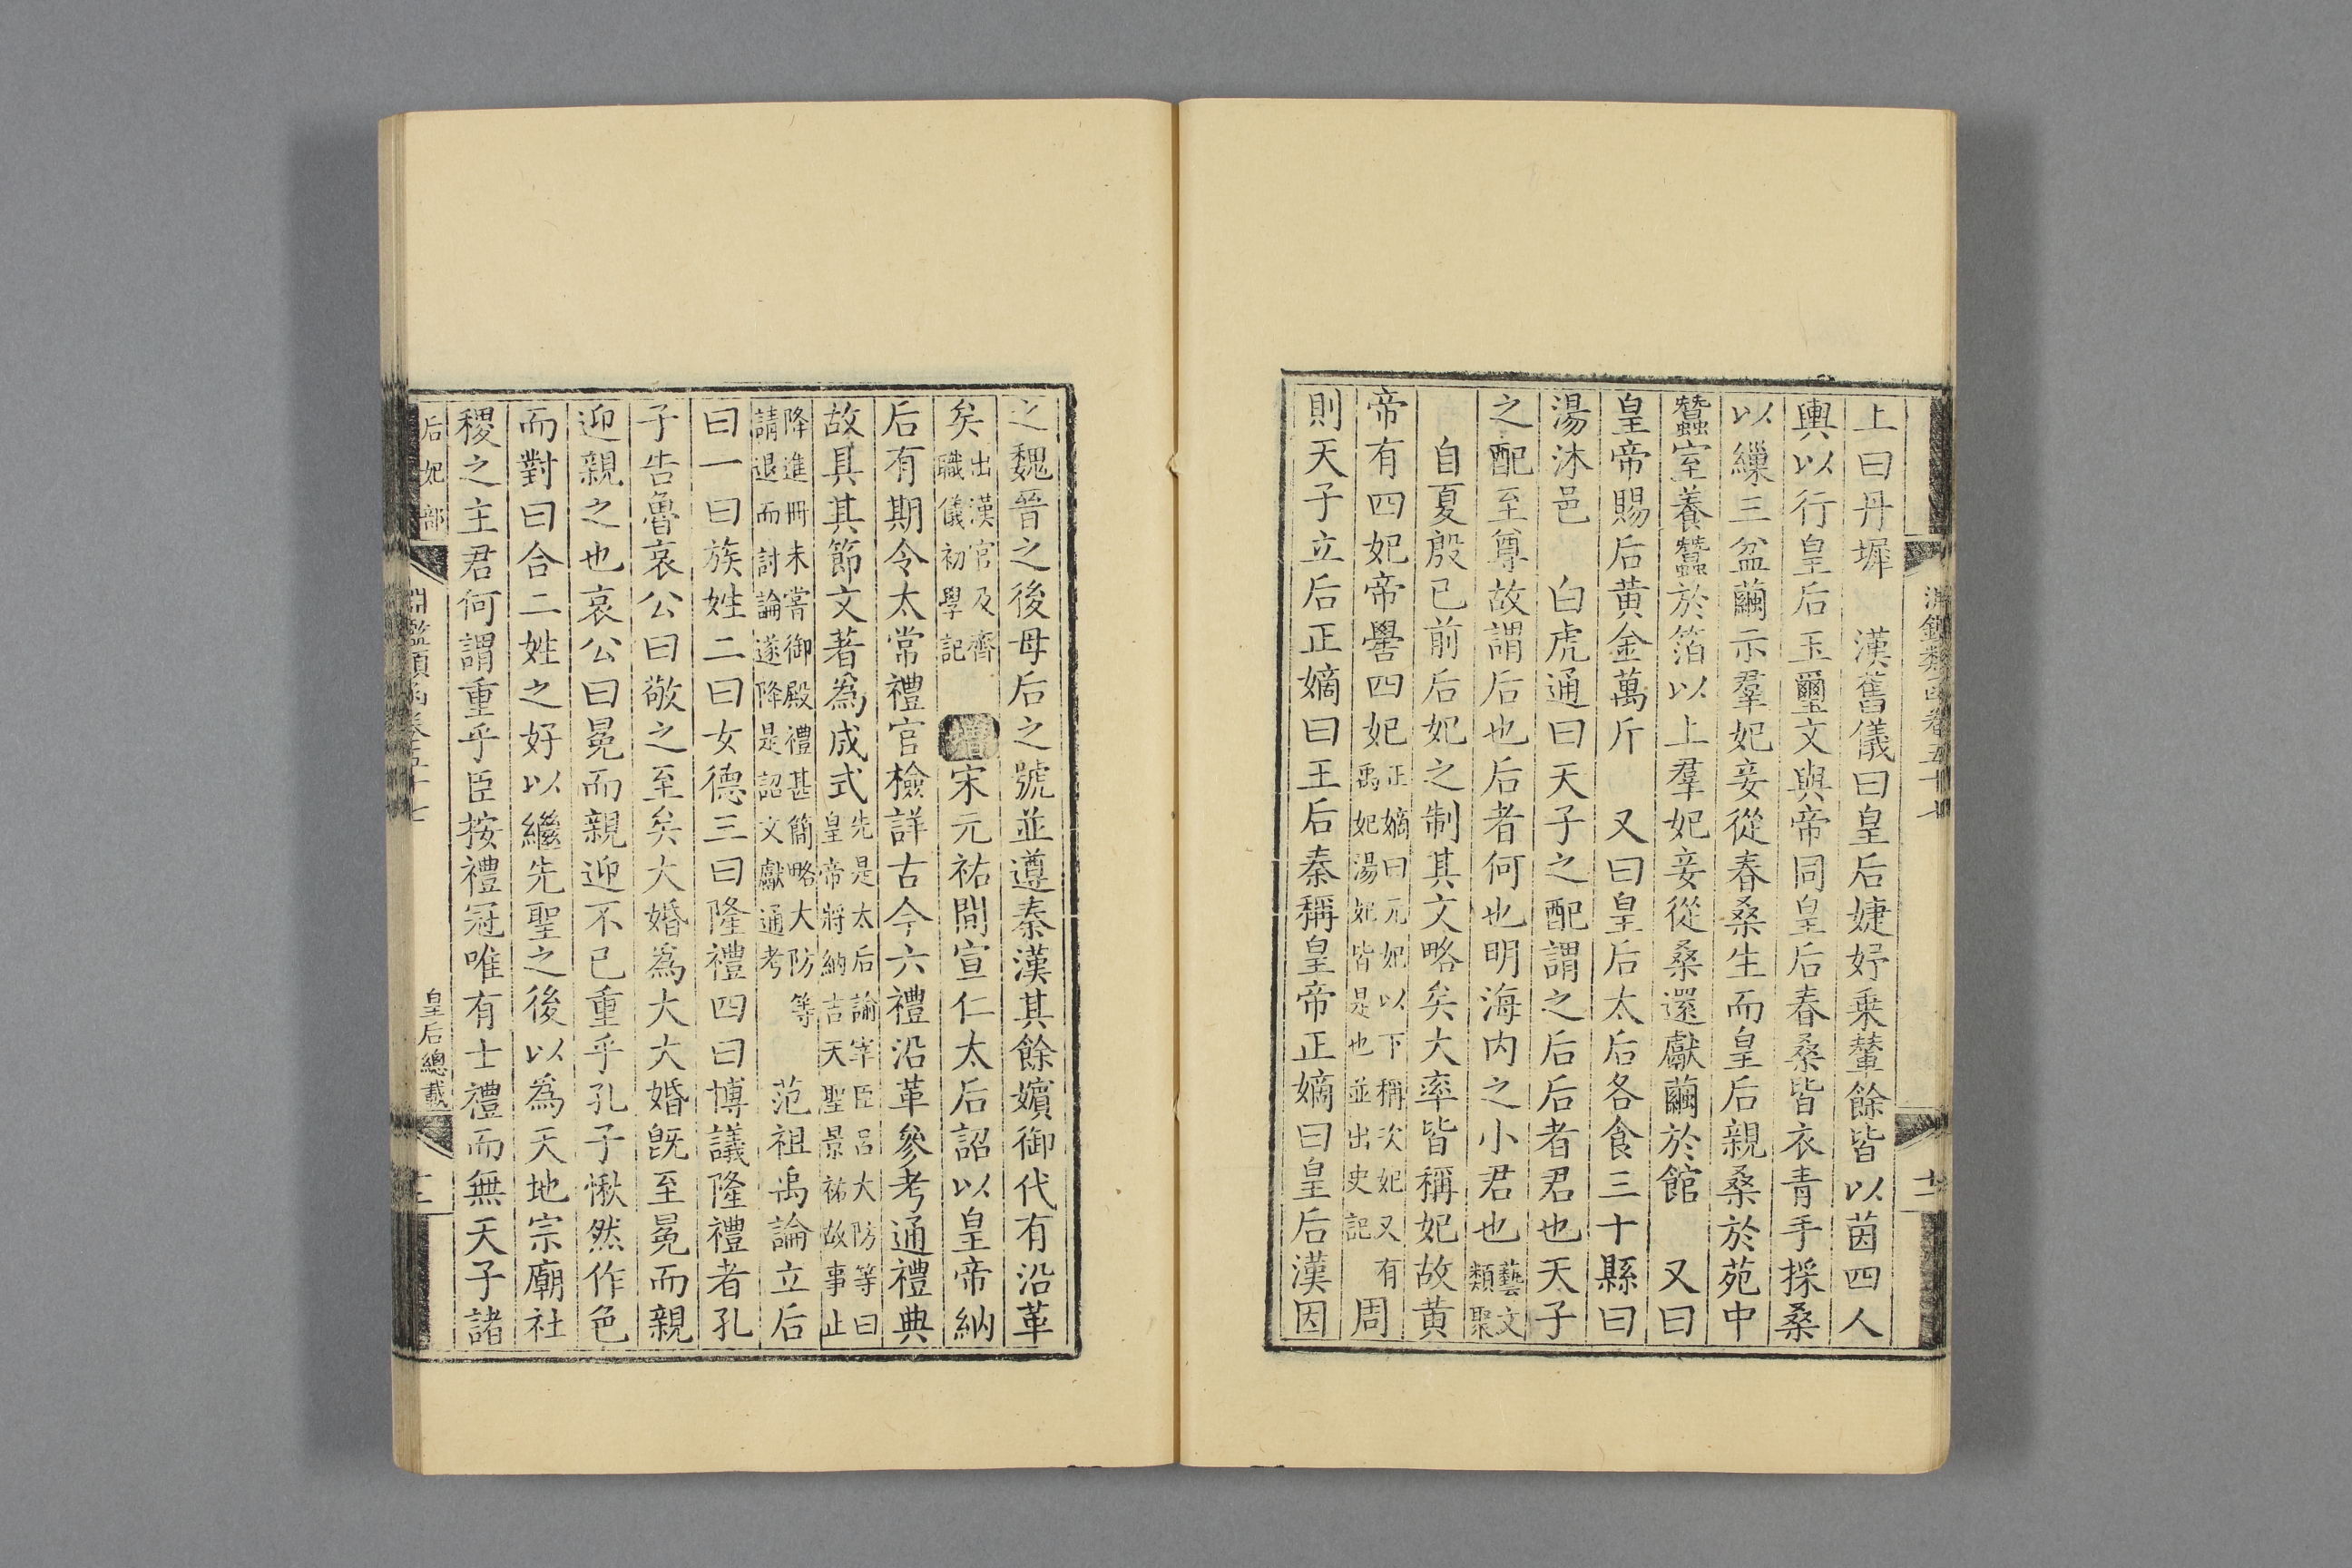 上曰丹墀　漢舊儀曰皇后婕妤乗輦餘皆以茵四人
輿以行皇后玉璽文與帝同皇后春桑皆衣青手採桑
以繅三盆繭示羣妃妾從春桑生而皇后親桑於苑中
蠶室養蠶於箔以上羣妃妾從桑還獻繭於館　又曰
皇帝賜后黄金萬斤　又曰皇后太后各食三十縣曰
湯沐邑　白虎通曰天子之配謂之后后者君也天子
之配至尊故謂后也后者何也明海内之小君也藝文類聚
自夏殷已前后妃之制其文略矣大率皆稱妃故黄
帝有四妃帝嚳四妃正嫡曰元妃以下稱次妃又有禹妃湯妃皆是也並出史記周
則天子立后正嫡曰王后秦稱皇帝正嫡曰皇后漢因
之魏晉之後母后之號並遵秦漢其餘嬪御代有沿革
矣出漢官及齊職儀初學記　增宋元祐間宣仁太后詔以皇帝納
后有期令太常禮官檢詳古今六禮沿革參考通禮典
故具其節文著爲成式先是太后諭宰臣呂大防等曰皇帝將納吉天聖景祐故事止
降進冊未嘗御殿禮甚簡略大防等請退而討論遂降是詔文獻通考　范祖禹論立后
曰一曰族姓二曰女德三曰隆禮四曰博議隆禮者孔
子告魯哀公曰敬之至矣大婚爲大大婚既至冕而親
迎親之也哀公曰冕而親迎不已重乎孔子愀然作色
而對曰合二姓之好以繼先聖之後以爲天地宗廟社
稷之主君何謂重乎臣按禮冠唯有士禮而無天子諸
后妃部　淵鑑類函卷五十七　皇后總載